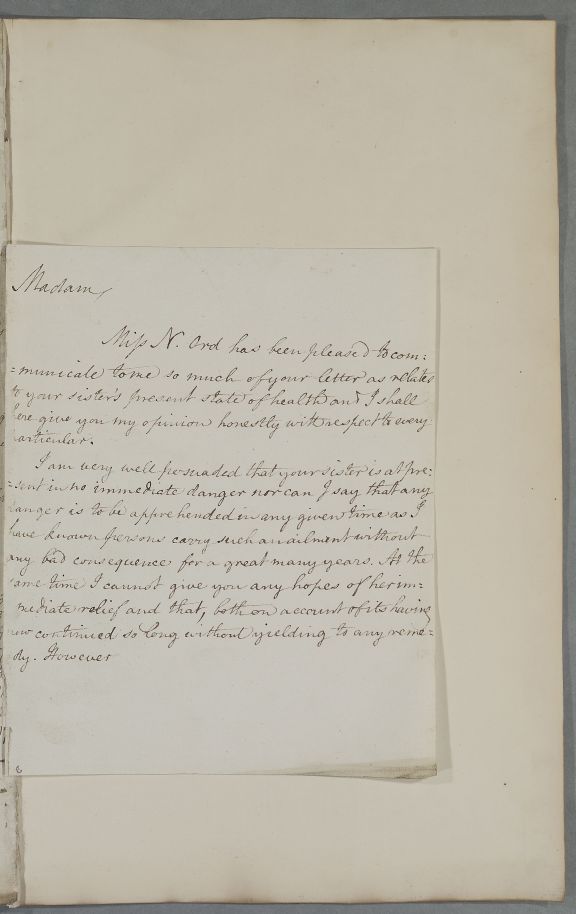 Madam,
Miss N. Ord has been pleased to com:
=municate to me so much of your letter as relates
to your sister's present state of health and I shall
here give you my opinion honestly with respect to every
particular.
I am very well persuaded that your sister is at pre:
=sent in no immediate danger nor can I say that any
danger is to be apprehended in any given time as I
have known persons carry such an ailment without
any bad consequence for a great many years. At the
same time I cannot give you any hopes of her im=
mediate relief and that, both on account of its having
now continued so long without yielding to any reme=
dy. However
8